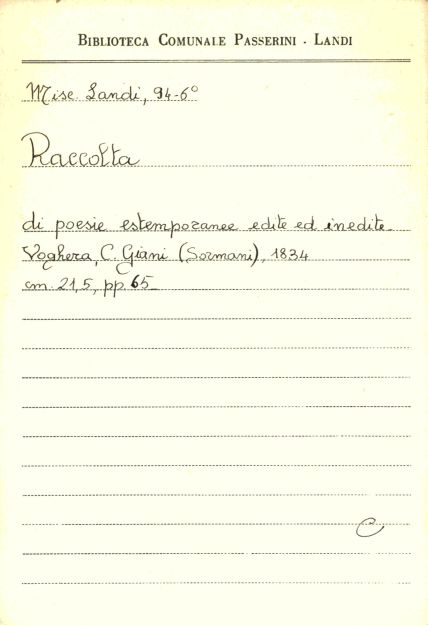 BIBLIOTECA COMUNALE PASSERINI - LANDI
Misc. Landi, 94-6°
Raccolta
di poesie estemporanee edite ed inedite.
Voghera, C. Giani (Sormani), 1834
cm. 21,5, pp. 65
C